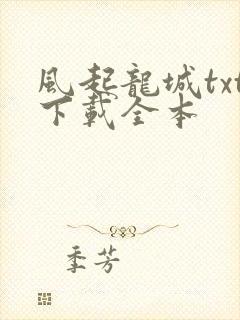 風起龍城txt
下載全本
季芳